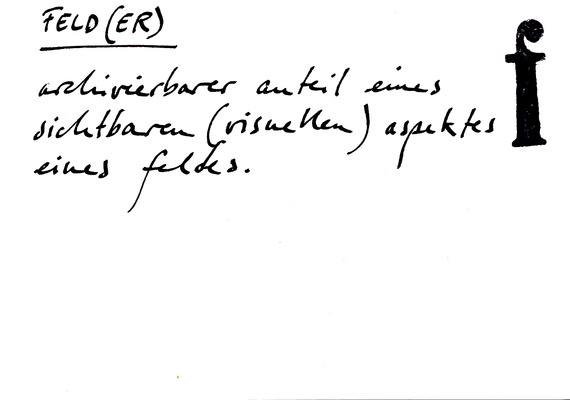 FELD(ER)
f
archivierbarer anteil eines
sichtbaren (visuellen) aspektes
eines feldes.